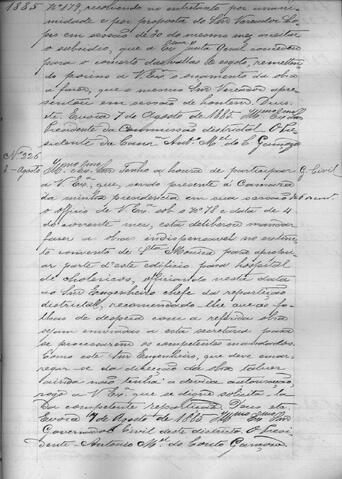 1885 Nº 179, resolvendo no entretanto por unani-
midade e por proposta do Snr Vereador
em sessão de 30 do mesmo mez, aceitar
o subsidio, que a Exma Junta Geral
para o concerto das vallas e esgoto, remetten-
do proximo a V. Exª o orçamento da obra
a fazer, que o mesmo Snr Vereador apre-
sentou em sessão de hontem. Deus
etc. Evora 7 de Agosto de 1885. Illmo Exmo
Presidente da Commissão districtal. O Pre-
sidente da Camara Antº Mel do C. Garizo
Nº 226
Agosto Illmo Exmo Snr. Tenho a honra de participar G. Civil
a V. Exª que, sendo presente á Camara
da minha presidencia em sua sessão
o officio de V. Exª sob o nº 78 e data de 4
do corrente mez, esta deliberou mandar
fazer a obra indispensavel no extinc-
to convento de Sta Monica para apropri-
ar parte d'este edificio para hospital
de cholericos, officiando nesta data
ao Snr Engenheiro chefe da repartição
districtal, recomendando-lhe que as fo-
lhas de despeza com a referida obra
sejam enviadas a esta secretaria para
se processarem os competentes mandados.
Como este Snr Engenheiro, que deve encar-
regar-se da direcção da obra talvez
ainda não tenha a devida autorisação,
rogo a V. Exª que se digne solicita-la
da competente repartição. Deus etc
Evora 7 de Agosto de 1885 Illmo Exmo Snr
Governador Civil deste districto. O Presi-
dente Antonio Mel do Couto Garizo